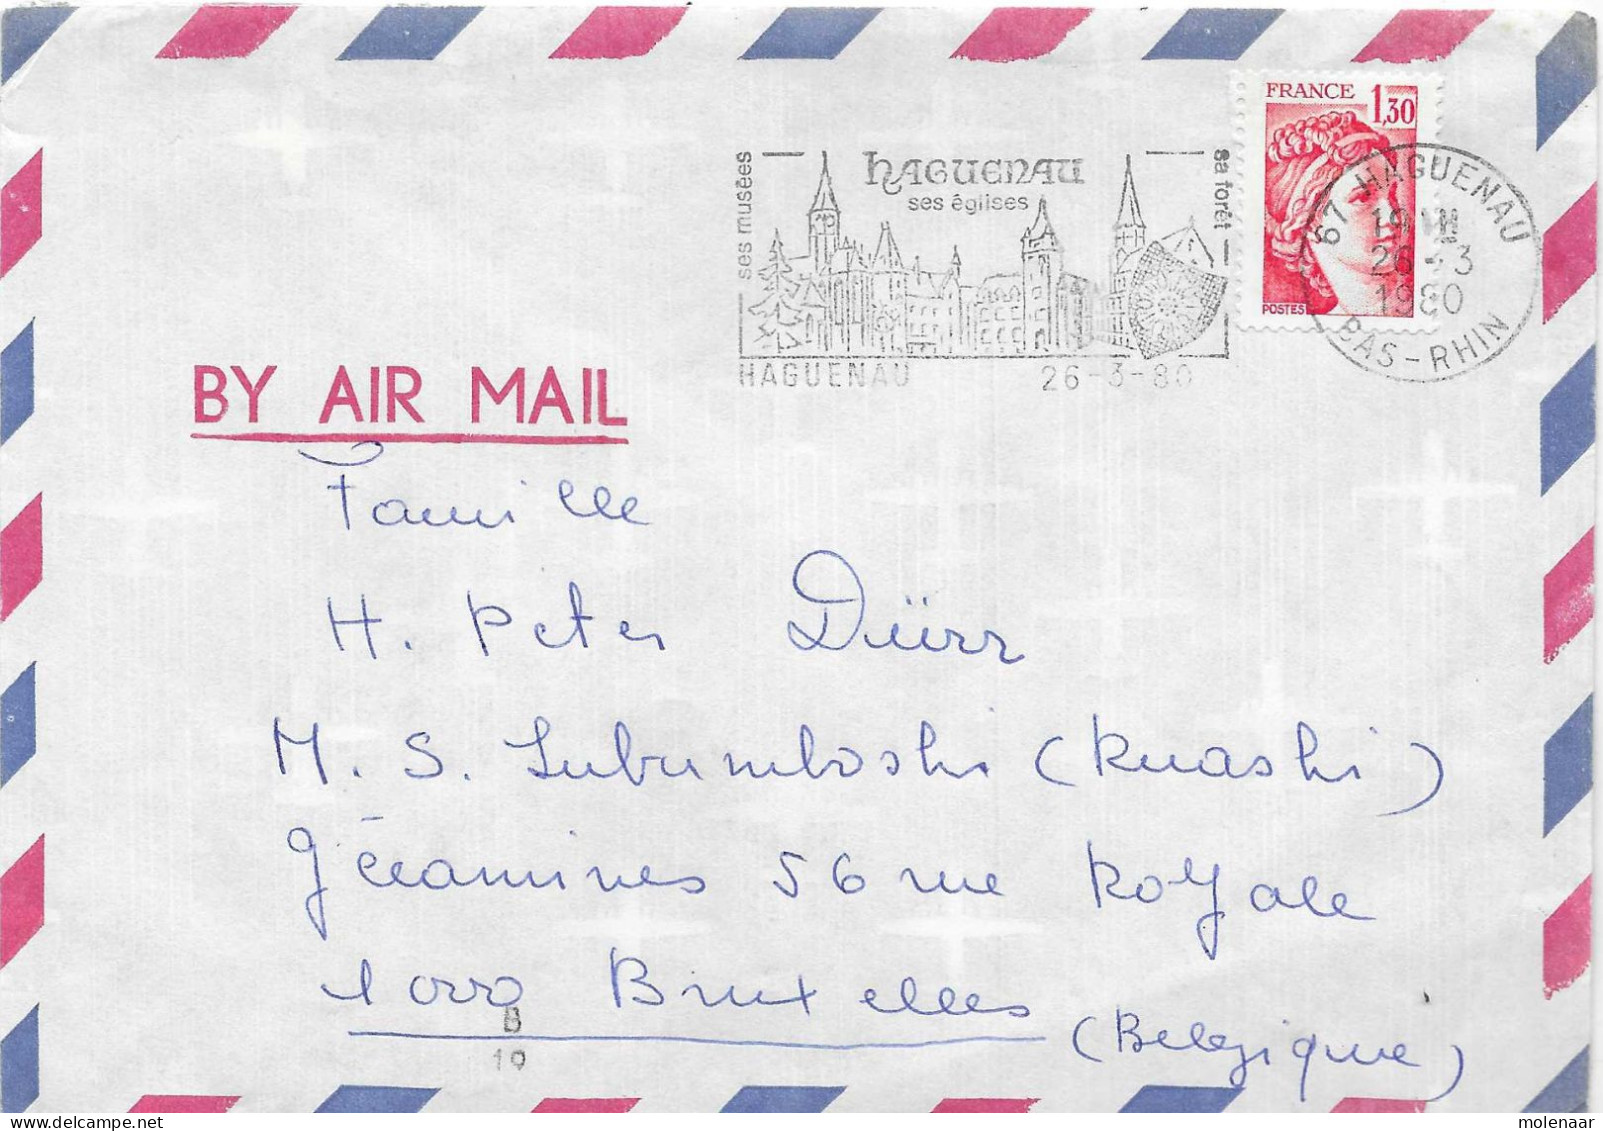 FRANCE 1,30
POSTES
HAGUENAU
ses églises
ses musées
sa forêt
HAGUENAU 26-3-80
67 HAGUENAU
19H
26-3
1980
BAS-RHIN
BY AIR MAIL
Famille
H. Peter Dürr
M. S. Lubumboshi (Kuashi)
Gécamines 56 rue Royale
1000 Bruxelles
(Belgique)
B
19
molenaar